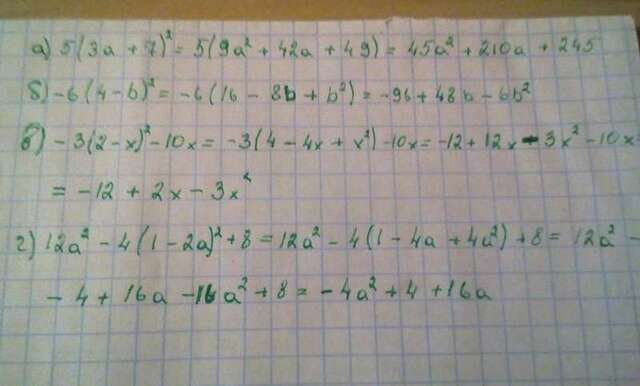 а) 5(3a + 7)² = 5(9a² + 42a + 49) = 45a² + 210a + 245
б) -6(4-b)² = -6(16 - 8b + b²) = -96 + 48b - 6b²
в) -3(2-x)² - 10x = -3(4 - 4x + x²) - 10x = -12 + 12x - 3x² - 10x
= -12 + 2x - 3x²
г) 12a² - 4(1 - 2a)² + 8 = 12a² - 4(1 - 4a + 4a²) + 8 = 12a² -
- 4 + 16a - 16a² + 8 = -4a² + 4 + 16a